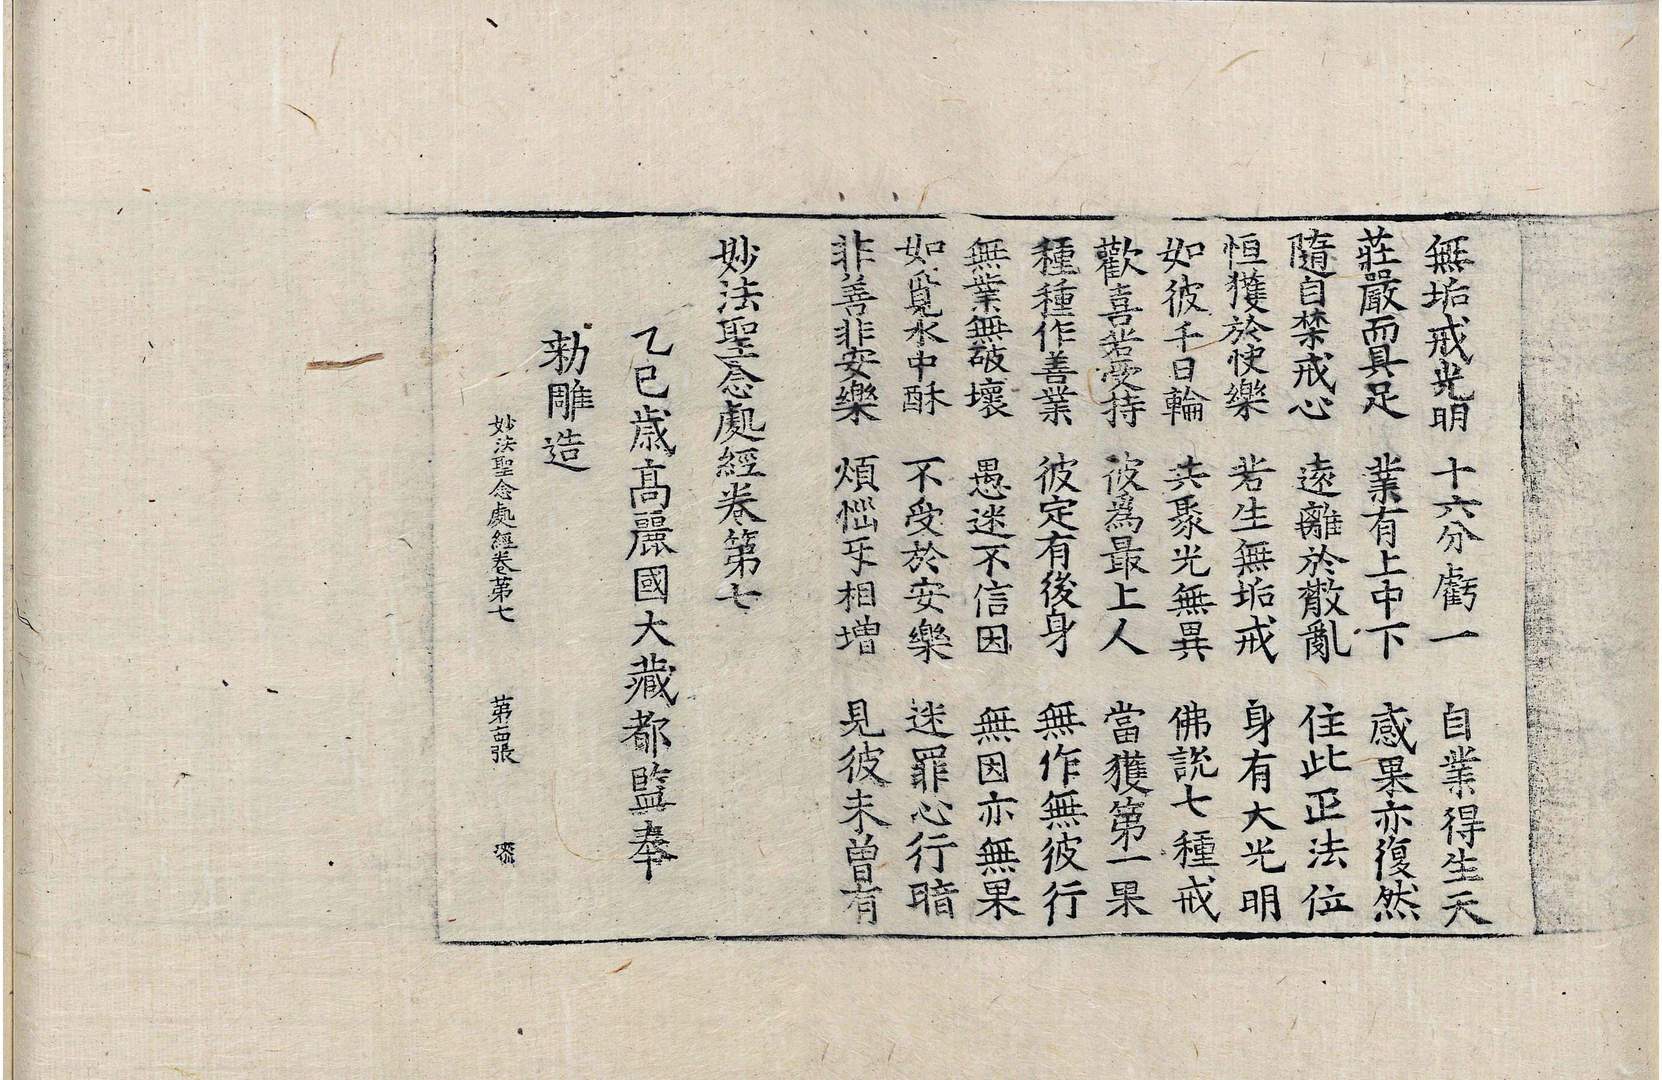 無垢戒光明 十六分虧一 自業得生天
莊嚴而具足 業有上中下 感果亦復然
隨自禁戒心 遠離於散亂 住此正法位
恒獲於快樂 若生無垢戒 身有大光明
如彼千日輪 共聚光無異 佛說七種戒
歡喜若受持 彼爲最上人 當獲第一果
種種作善業 彼定有後身 無作無彼行
無業無破壞 愚迷不信因 無因亦無果
如覓水中酥 不受於安樂 迷罪心行暗
非善非安樂 煩惱互相增 見彼未曾有
妙法聖念處經卷第七
乙巳歲高麗國大藏都監奉
勅雕造
妙法聖念處經卷第七 第 張